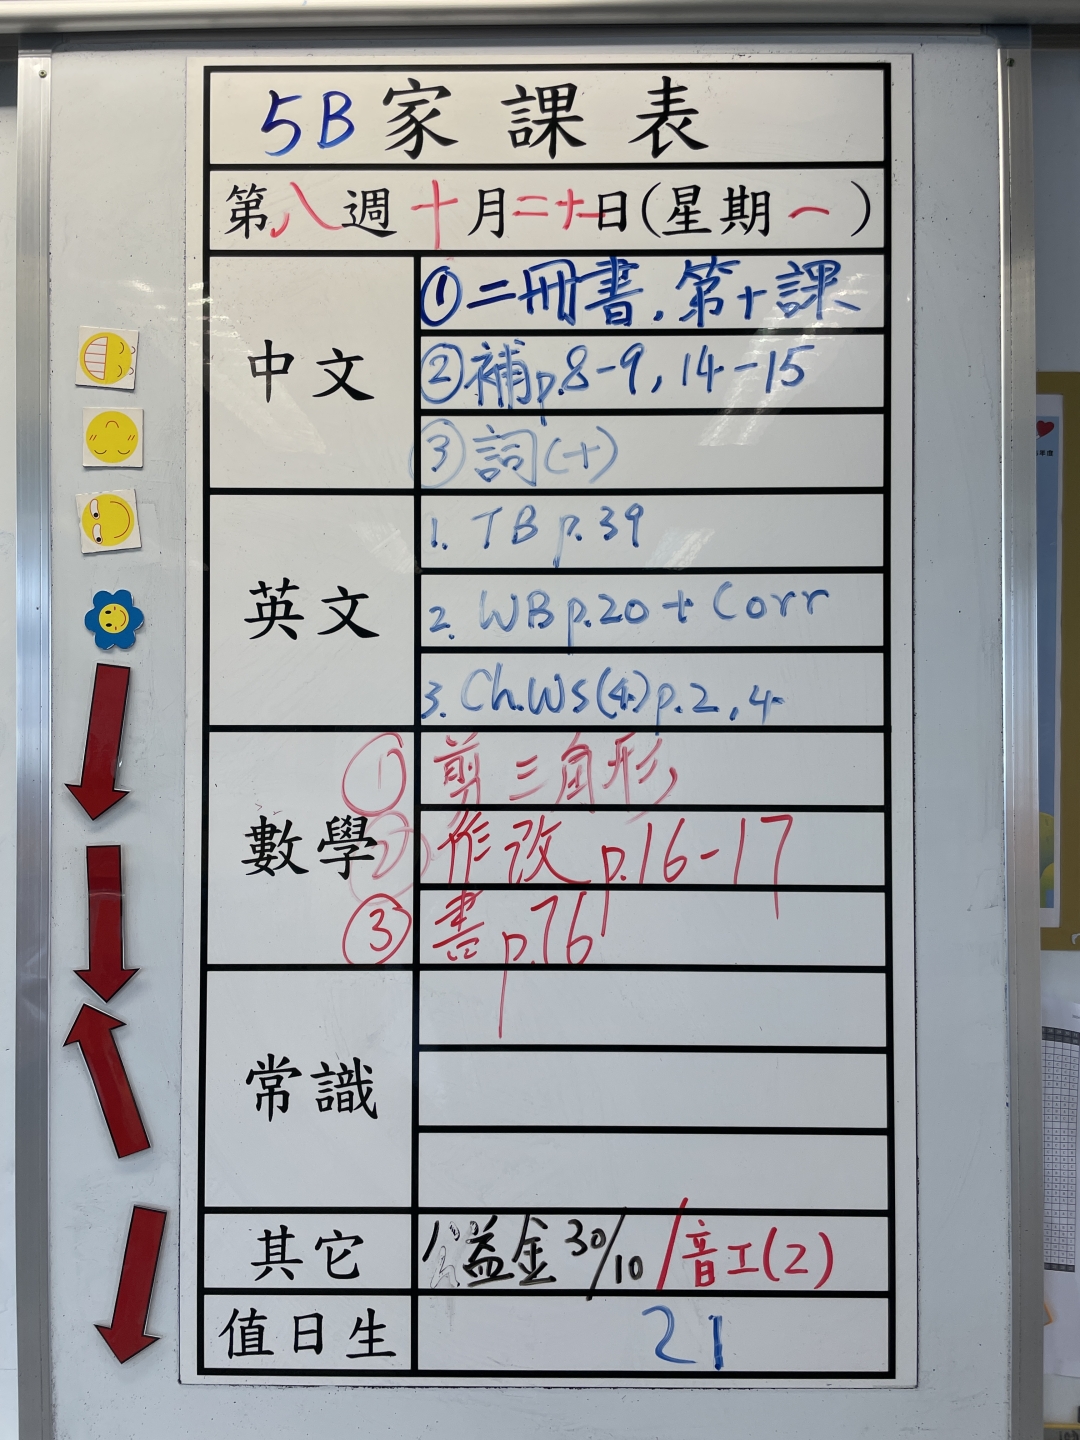 5B家課表
第八週十月二十一日(星期一)
中文
①二冊書.第十課
②補p.8-9,14-15
③詞(十)
英文
1. TB p.39
2. WB p.20 + Corr
3. Ch.WS(4)p.2,4
數學
① 剪三角形,
② 作改 p.16-17
③ 書p.76
常識
其它
益金30/10/音工(2)
值日生
21